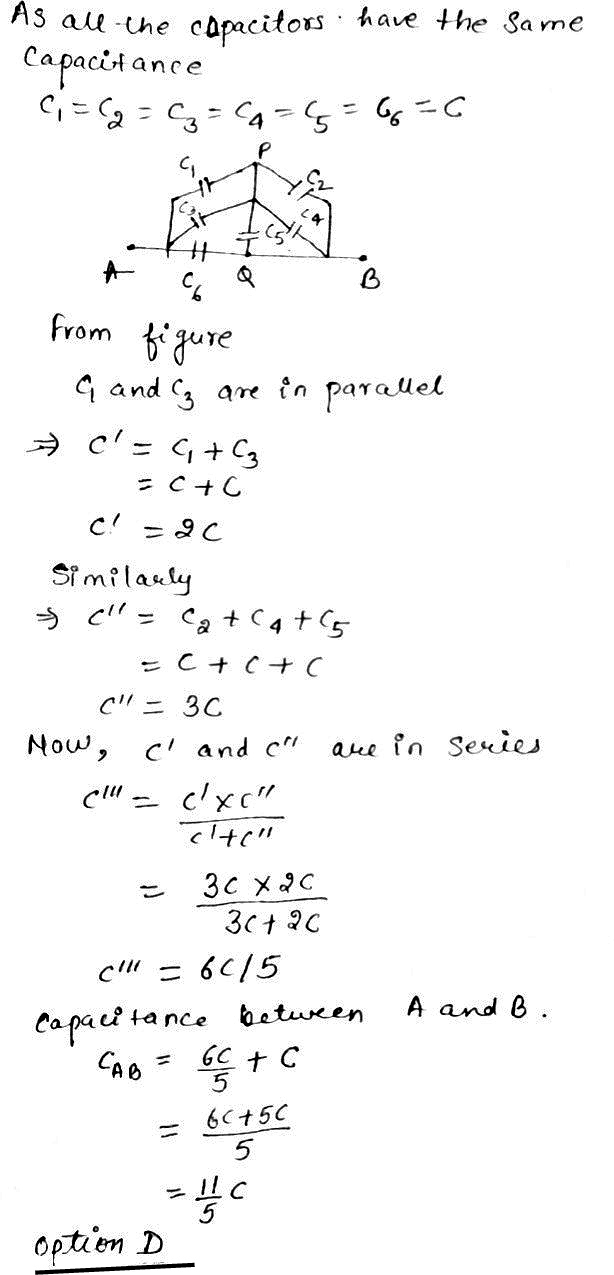 As all the capacitors have the same
Capacitance
C₁ = C₂ = C₃ = C₄ = C₅ = C₆ = C
P
C₁
C₂
C₃
C₄
C₅
A
C₆
Q
B
from figure
C₁ and C₃ are in parallel
⇒ C' = C₁ + C₃
= C + C
C' = 2C
Similarly
⇒ C'' = C₂ + C₄ + C₅
= C + C + C
C'' = 3C
Now, C' and C'' are in series
C''' = C' × C'' / C' + C''
= 3C × 2C / 3C + 2C
C''' = 6C/5
Capacitance between A and B.
C_AB = 6C/5 + C
= 6C + 5C / 5
= 11/5 C
Option D